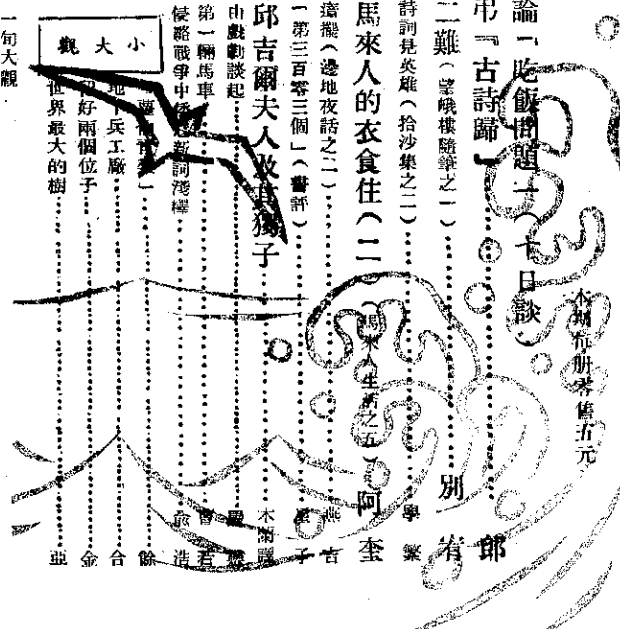 本期每册零售五元
論「吃飯問題」(十日談)
弔『古詩歸』 郎
二難(望峨樓隨筆之一) 別宥
詩詞是英雄(拾沙集之二) 學藜
馬來人的衣食住(二)(馬來人生活之五) 阿奎
瘡擺(邊地夜話之二) 燕吉
「第三百零三個」(書評) 子
邱吉爾夫人及其獨子 木蘭譯
由戲劇談起
第一輛馬車 曾若
侵略戰爭中 新詞淺釋 俞浩
小大觀
餘
地 兵工廠 合
好兩個位子 金
世界最大的樹 亞
一旬大觀